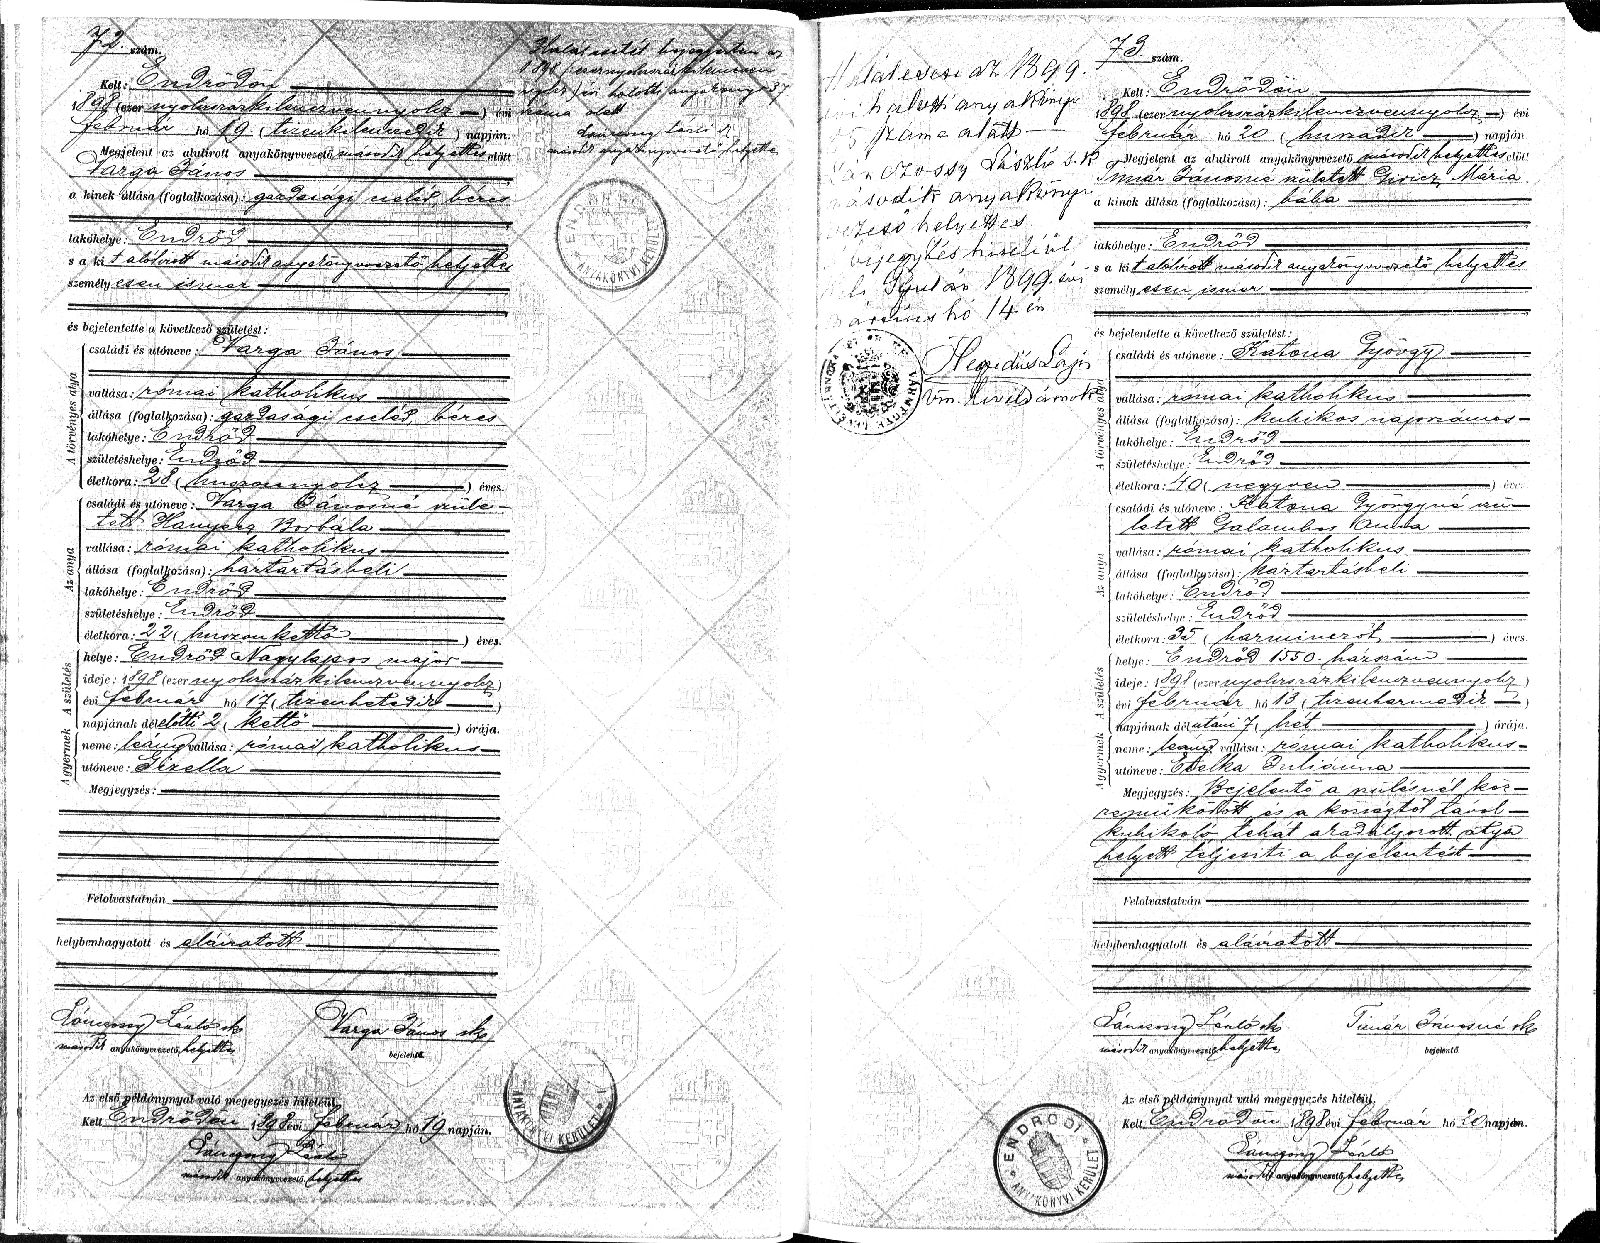 72. szám.
Kelt: Endrődön
1898 (ezer nyolczszázkilenczvennyolcz) évi
február hó 19. (tizenkilenczedik) napján.
Megjelent az alulirott anyakönyvvezető második helyettes előtt
Varga János
a kinek állása (foglalkozása): gazdasági cseléd, béres
lakóhelye: Endrőd
s a kit alólirott második anyakönyvvezető helyettes
személyesen ismer
és bejelentette a következő születést:
A törvényes atya
családi és utóneve: Varga János
vallása: római katholikus
állása (foglalkozása): gazdasági cseléd, béres
lakóhelye: Endrőd
születéshelye: Endrőd
életkora: 28 (huszonnyolcz) éves.
Az anya
családi és utóneve: Varga Jánosné szüle-
tett Hanyecz Borbála
vallása: római katholikus
állása (foglalkozása): háztartásbeli
lakóhelye: Endrőd
születéshelye: Endrőd
életkora: 22 (huszonkettő) éves.
A születés
helye: Endrőd Nagylapos major
ideje: 1898 (ezer nyolczszázkilenczvennyolcz)
évi február hó 17 (tizenhetedik)
napjának délelőtti 2 (kettő) órája.
A gyermek
neme: leány vallása: római katholikus
utóneve: Gizella
Megjegyzés:
Felolvastatván
helybenhagyatott és aláiratott
László sk
második anyakönyvvezető helyettes
Varga János sk
bejelentő.
Az első példánynyal való megegyezés hiteléül.
Kelt Endrődön 1898 évi február hó 19 napján.
László
második anyakönyvvezető helyettes
Halálesetét bejegyeztem az
1898 (ezernyolczszázkilenczven-
nyolcz) évi halotti anyakönyv 37
száma alatt
László sk
második anyakönyvvezető helyettes
ENDRŐDI ANYAKÖNYVI KERÜLET
ANYAKÖNYVI KERÜLET
Haláleset az 1899.
évi halotti anyakönyv
száma alatt
László s.k.
második anyakönyv
vezető helyettes
bejegyzés hiteléül
Gyulán 1899. évi
március hó 14-én
Hegedüs Lajos
vm. levéltárnok
73. szám.
Kelt: Endrődön
1898 (ezer nyolczszázkilenczvennyolcz) évi
február hó 20 (huszadik) napján
Megjelent az alulirott anyakönyvvezető második helyettes előtt
Timár Jánosné született Giricz Mária
a kinek állása (foglalkozása): bába
lakóhelye: Endrőd
s a kit alólirott második anyakönyvvezető helyettes
személyesen ismer
és bejelentette a következő születést:
A törvényes atya
családi és utóneve: Katona György
vallása: római katholikus
állása (foglalkozása): kubikos napszámos
lakóhelye: Endrőd
születéshelye: Endrőd
életkora: 40 (negyven) éves.
Az anya
családi és utóneve: Katona Györgyné szü-
letett Galambos Anna
vallása: római katholikus
állása (foglalkozása): háztartásbeli
lakóhelye: Endrőd
születéshelye: Endrőd
életkora: 35 (harminczöt) éves.
A születés
helye: Endrőd 1550. házszám
ideje: 1898 (ezer nyolczszázkilenczvennyolcz)
évi február hó 13 (tizenharmadik)
napjának délutáni 7 (hét) órája.
A gyermek
neme: leány vallása: római katholikus
utóneve: Etelka Juliánna
Megjegyzés: Bejelentő a szülésnél köz-
reműködött és a községtől távol
kubikoló tehát akadályozott atya
helyett teljesiti a bejelentést
Felolvastatván
helybenhagyatott és aláiratott
László sk
második anyakönyvvezető helyettes
Timár Jánosné sk
bejelentő.
Az első példánynyal való megegyezés hiteléül.
Kelt Endrődön 1898 évi február hó 20 napján.
László
második anyakönyvvezető helyettes
ENDRŐDI ANYAKÖNYVI KERÜLET